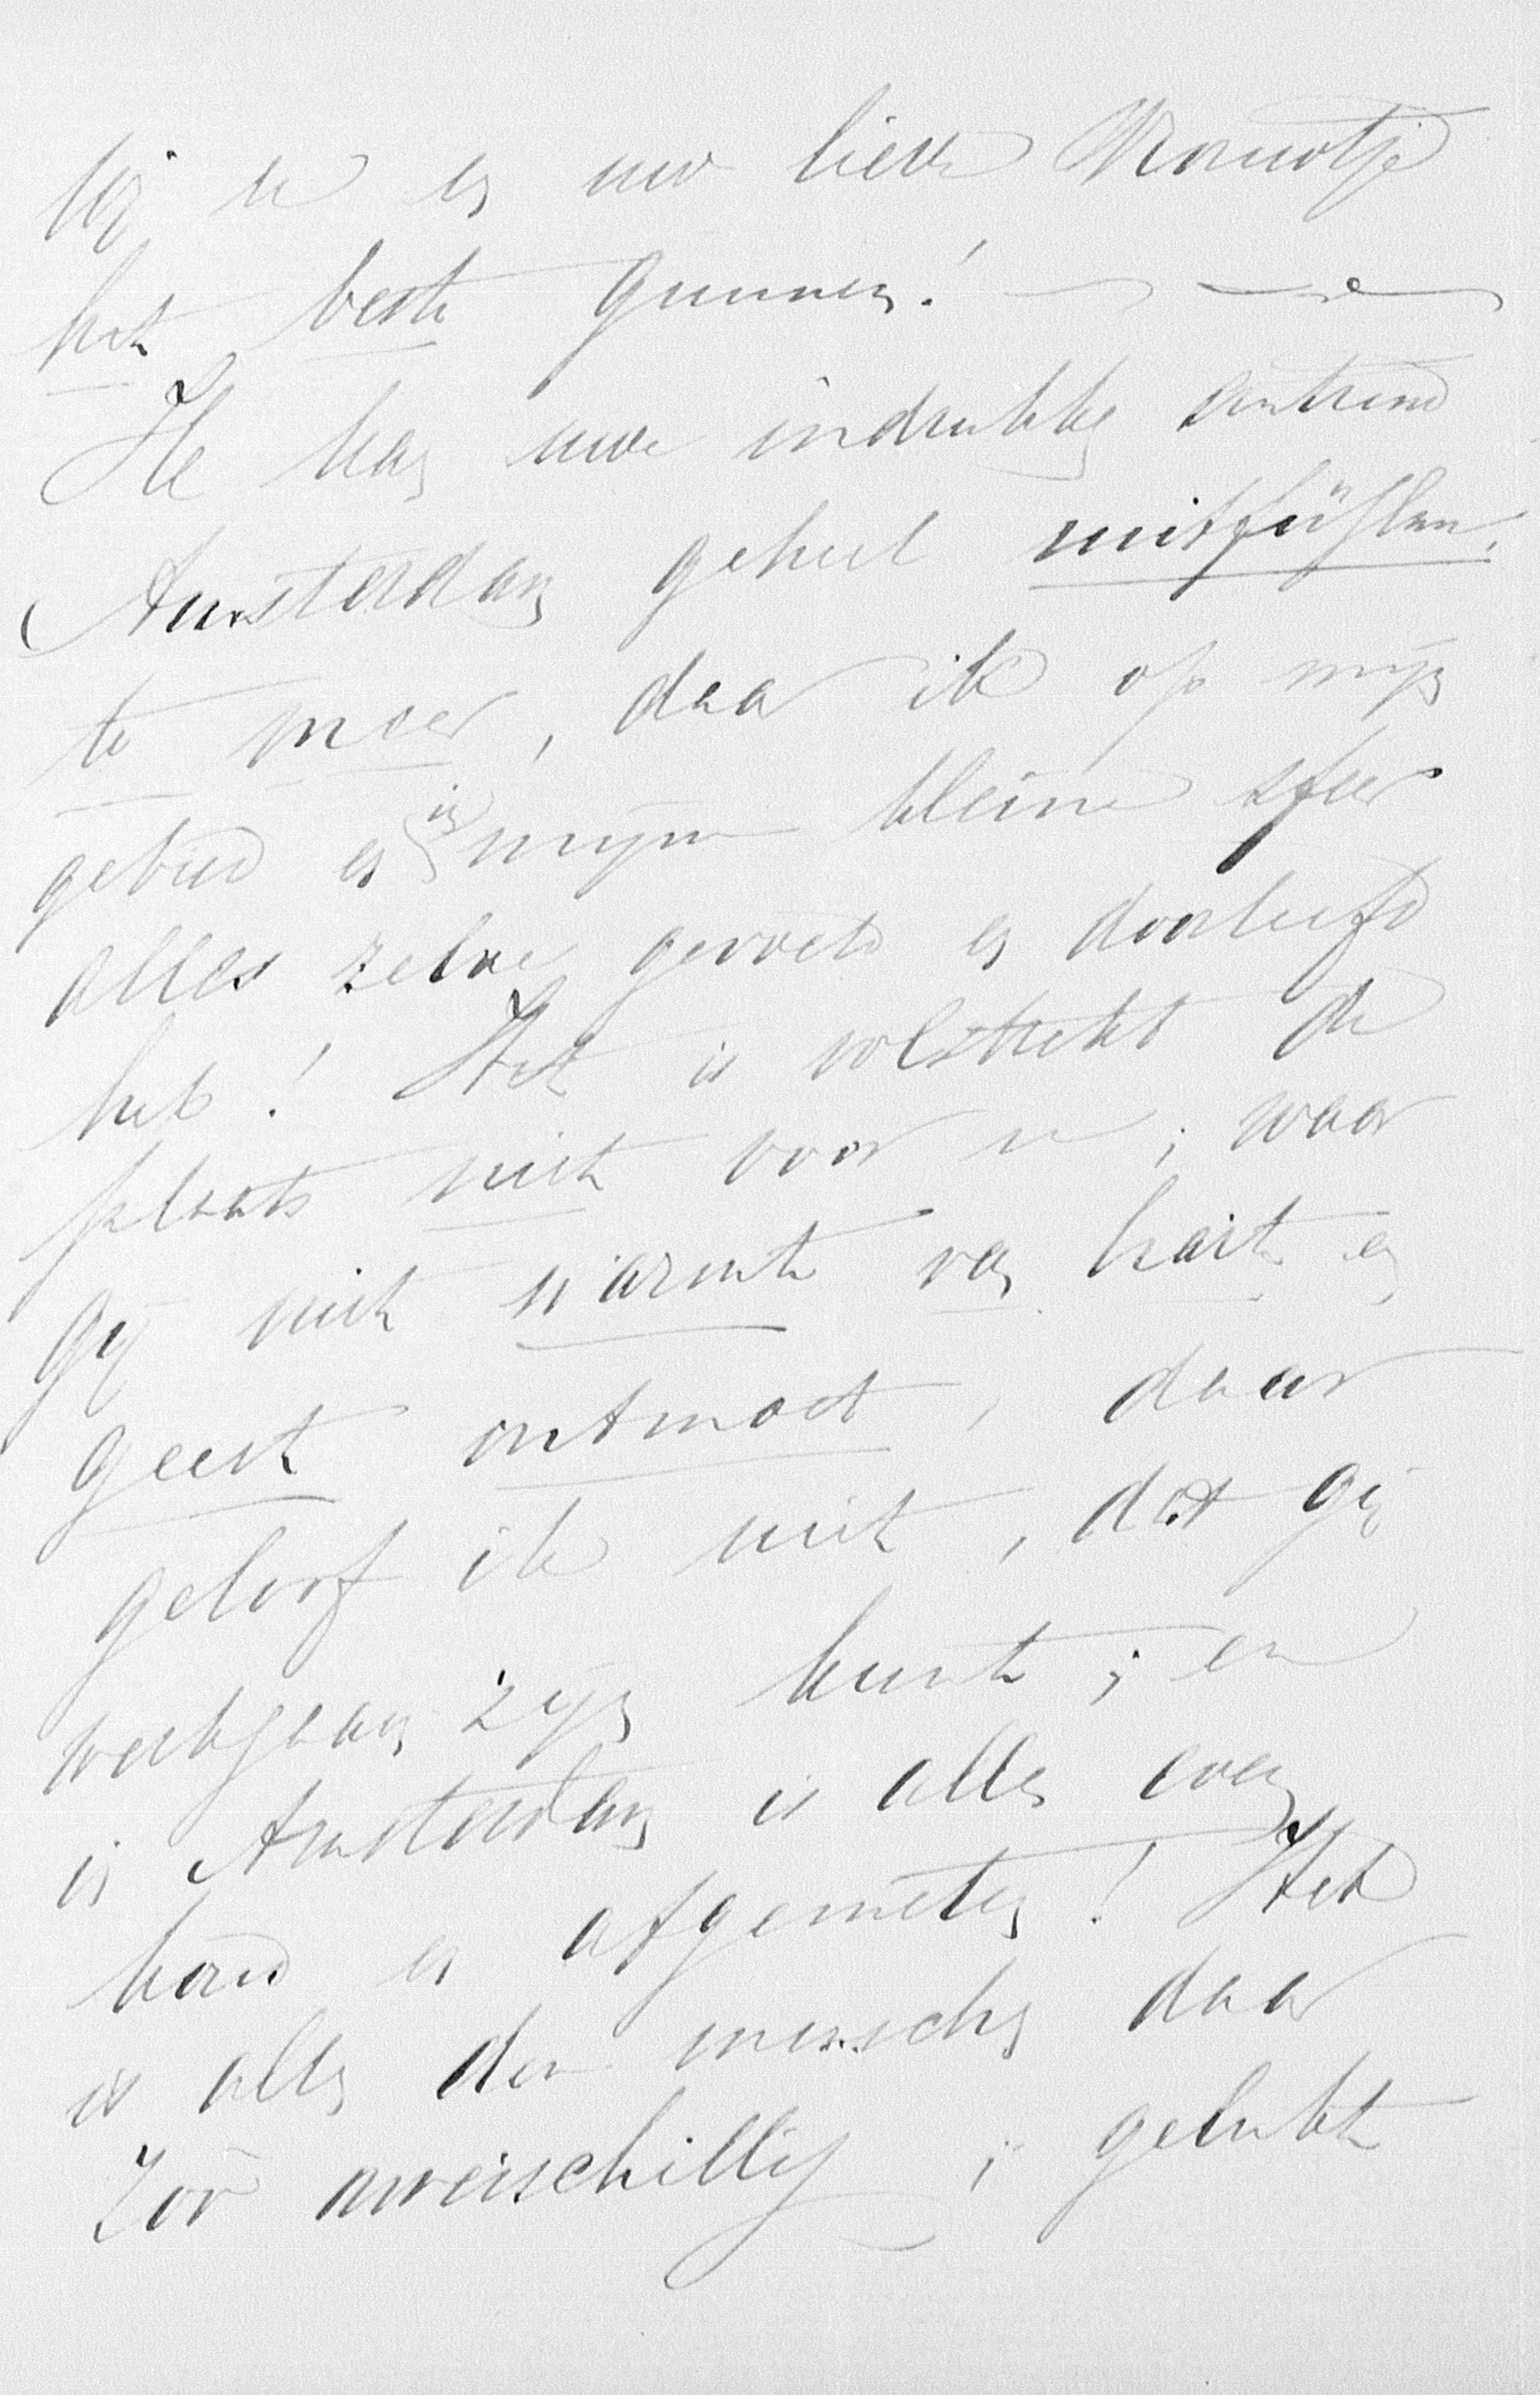 wij u en uw lieve Vrouwtje
het beste gunnen!
Ik kan uwe indrukken omtrend
Amsterdam geheel mitfühlen,
te meer, daar ik op mijn
gebied en in mijne kleine sfeer
alles zelve gevoeld en doorleefd
heb! Het is volstrekt de
plaats niet voor u; waar
gij niet warmte van hart en
geest ontmoet, daar
geloof ik niet, dat gij
werkzaam zijn kunt; en
in Amsterdam is alles even
koud en afgemeten! Het
is alles den menschen daar
zoo onverschillig; gelukt